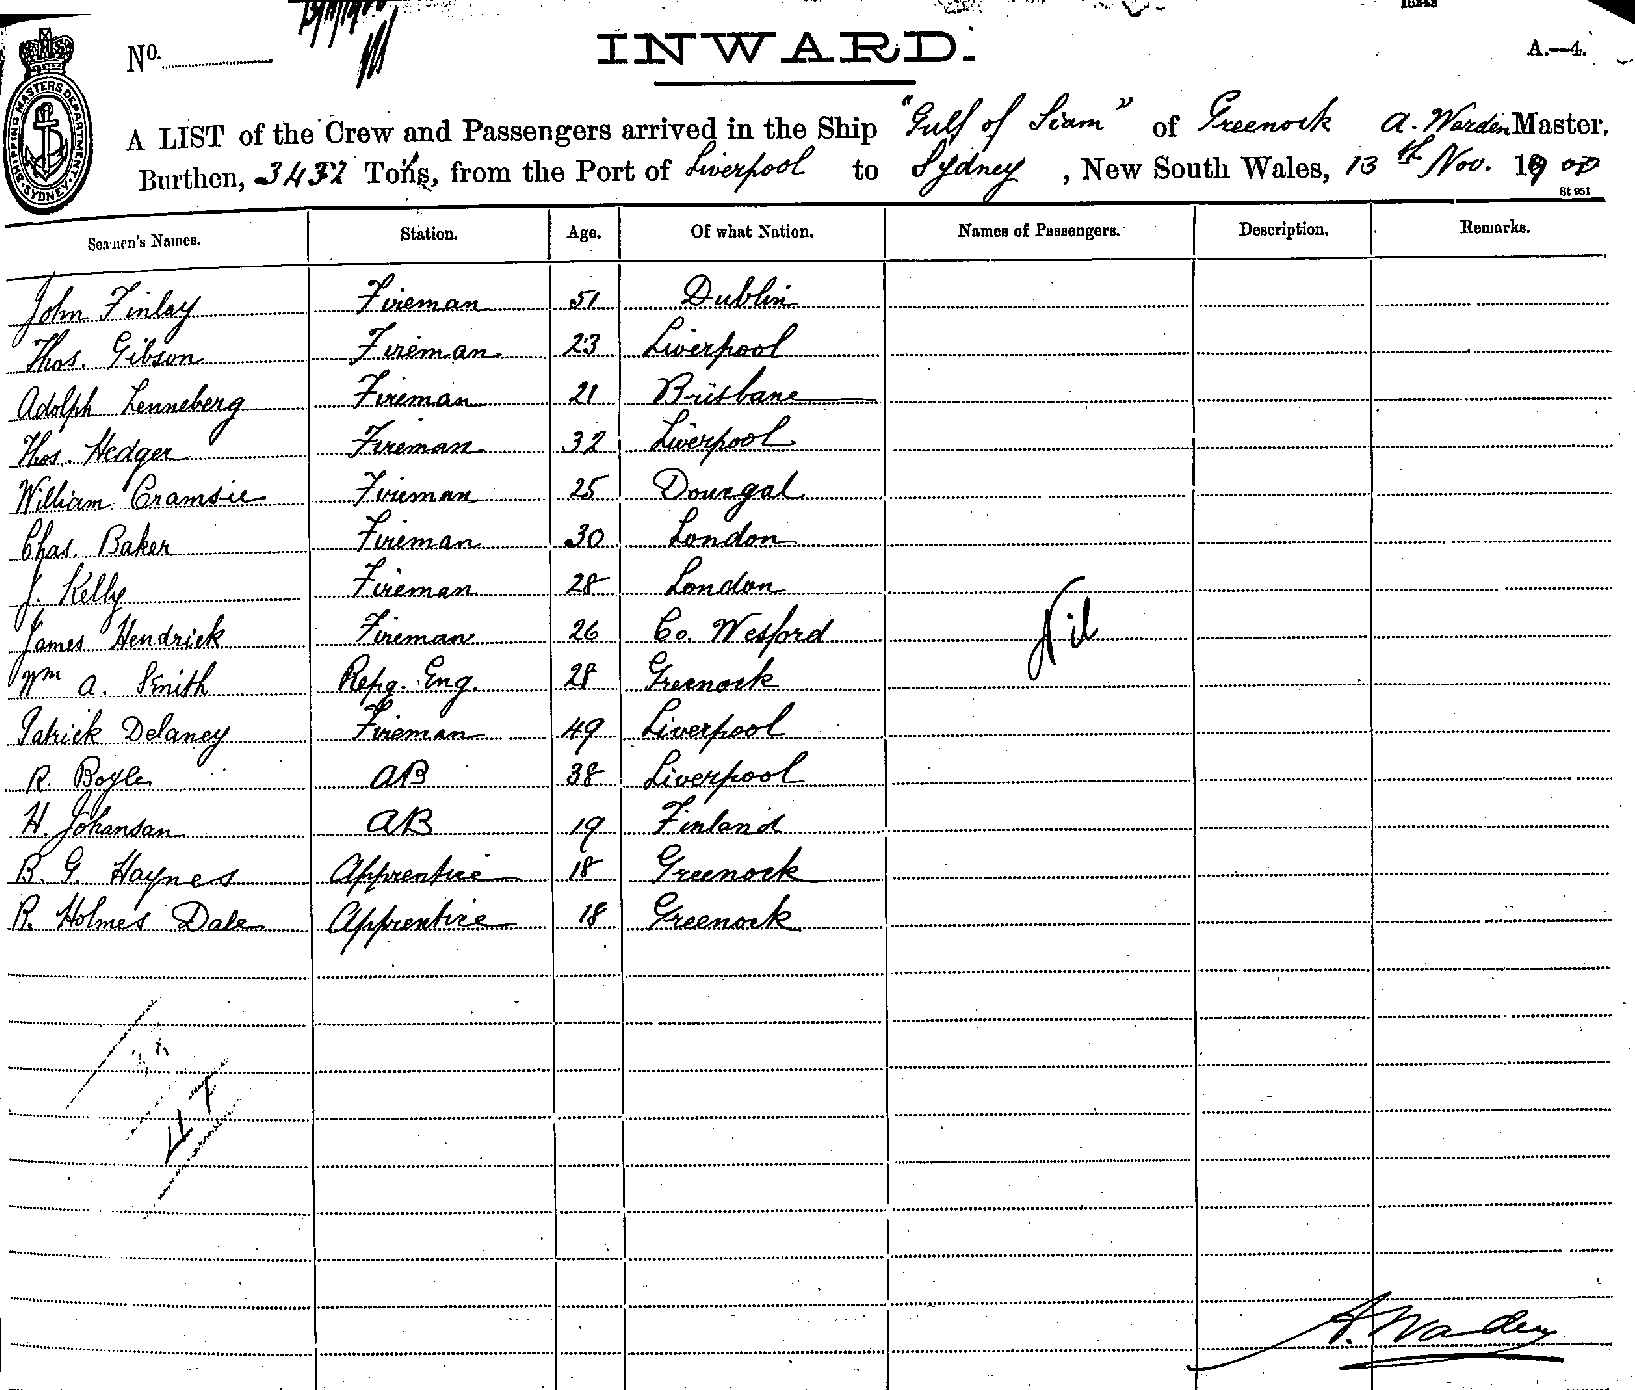 No.
INWARD.
A.—4.
SHIPPING MASTERS DEPARTMENT SYDNEY
A LIST of the Crew and Passengers arrived in the Ship "Gulf of Siam" of Greenock A. Warden Master,
Burthen, 3432 Tons, from the Port of Liverpool to Sydney, New South Wales, 13th Nov. 1900
St 951
Seamen's Names. Station. Age. Of what Nation. Names of Passengers. Description. Remarks.
John Finlay Fireman 51 Dublin
Thos. Gibson Fireman 23 Liverpool
Adolph Lenneberg Fireman 21 Brisbane
Thos. Hedger Fireman 32 Liverpool
William Cramsie Fireman 25 Donegal
Chas. Baker Fireman 30 London
J. Kelly Fireman 28 London
James Hendrick Fireman 26 Co. Wexford Nil
Wm A. Smith Refg. Eng. 28 Greenock
Patrick Delaney Fireman 49 Liverpool
R. Boyle AB 38 Liverpool
H. Johansan AB 19 Finland
B. G. Haynes Apprentice 18 Greenock
R. Holmes Dale Apprentice 18 Greenock
47
A. Warden